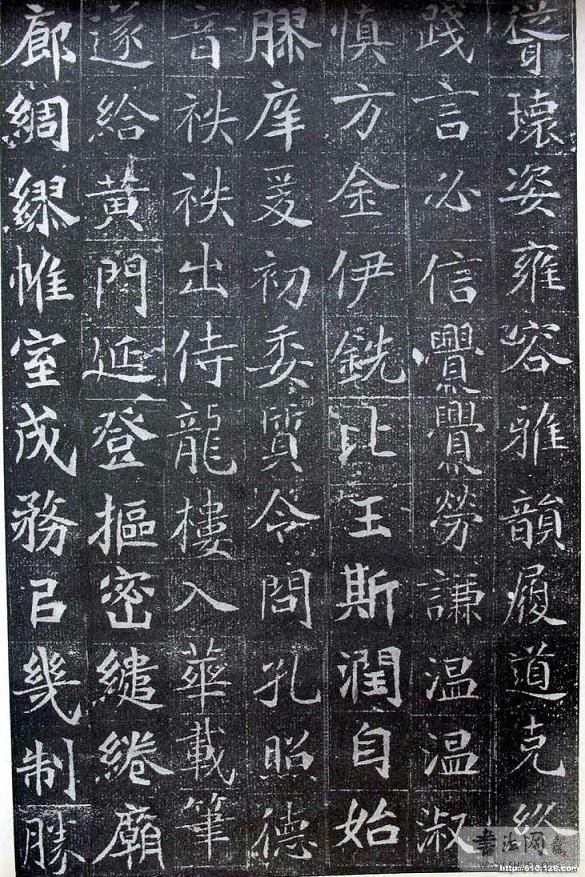 聳瓌姿雍容雅韻履道克從
踐言必信亹亹勞謙温温淑
慎方金伊銑比玉斯潤自始
膠庠爰初委質令問孔照德
音袟袟出侍龍樓入華載筆
遂給黃門延登摳密繾綣廟
廊綢繆帷室成務㠯幾制勝
http://610.126.com